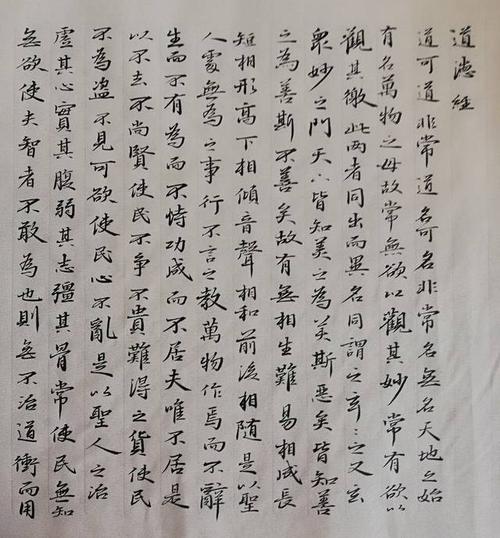 道德經
道可道非常道名可名非常名無名天地之始
有名萬物之母故常無欲以觀其妙常有欲以
觀其徼此兩者同出而異名同謂之玄玄之又玄
衆妙之門天下皆知美之為美斯惡矣皆知善
之為善斯不善矣故有無相生難易相成長
短相形高下相傾音聲相和前後相随是以聖
人處無為之事行不言之教萬物作焉而不辭
生而不有為而不恃功成而不居夫唯不居是
以不去不尚賢使民不争不貴難得之貨使民
不為盗不見可欲使民心不亂是以聖人之治
虛其心實其腹弱其志彊其骨常使民無知
無欲使夫智者不敢為也則無不治道衝而用